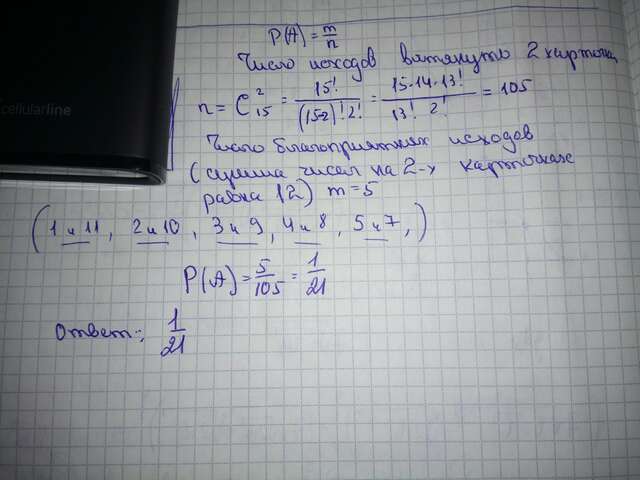 P(A) = m/n
Число исходов вытянуть 2 карточки
cellularline
n = C²₁₅ = 15!/(15-2)!2! = 15·14·13!/13! 2! = 105
Число благоприятных исходов
(сумма чисел на 2-х карточках
равна 12) m = 5
(1 и 11, 2 и 10, 3 и 9, 4 и 8, 5 и 7,)
P(A) = 5/105 = 1/21
Ответ: 1/21